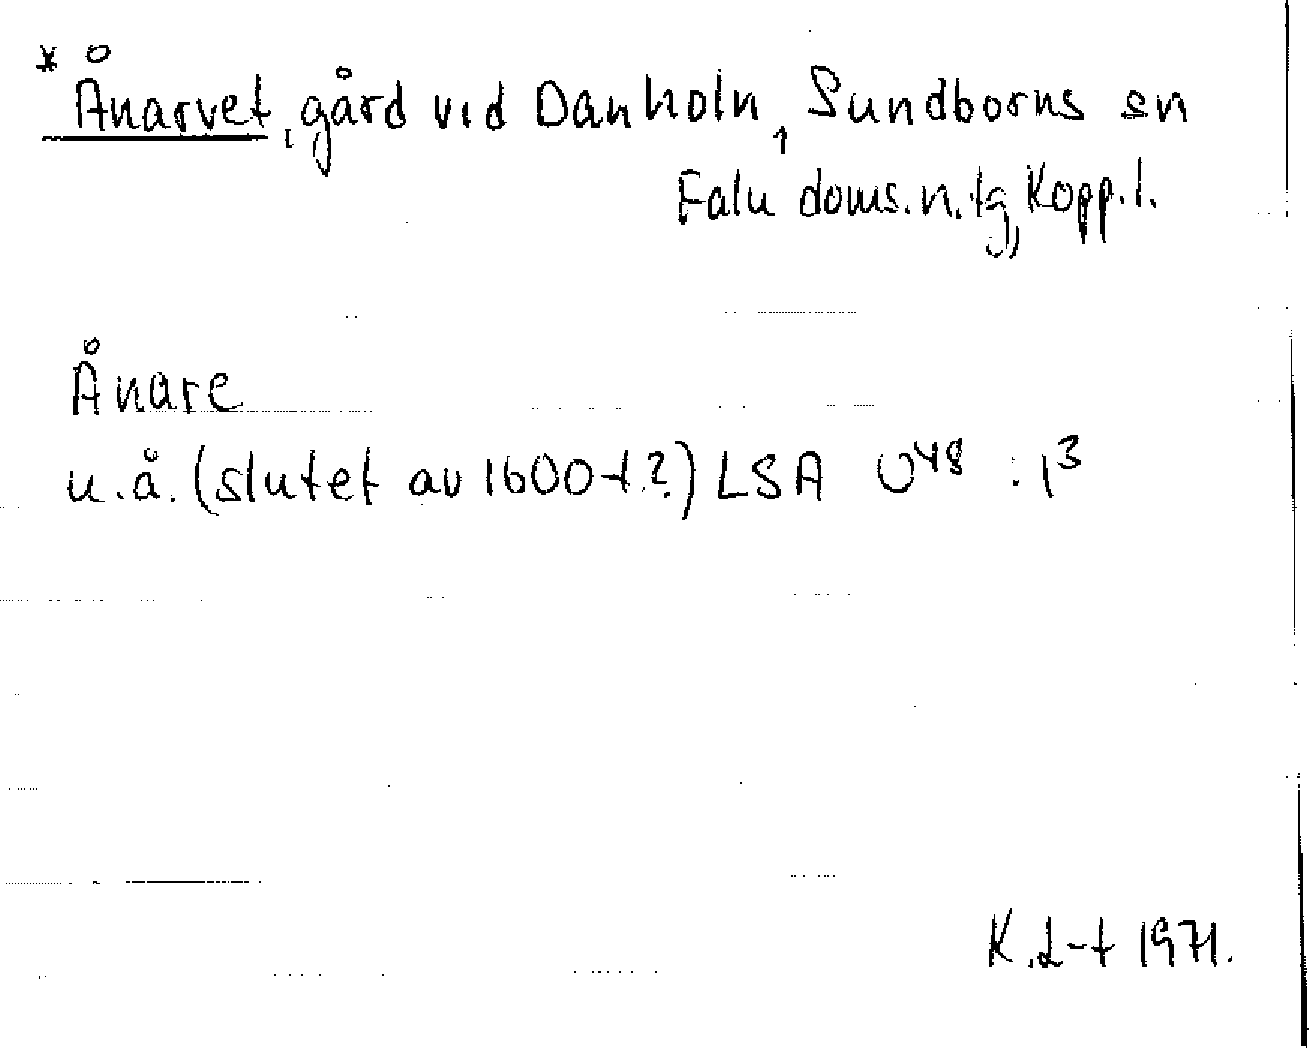 * Ånarvet, gård vid Danholn, Sundborns sn
Falu doms.n.tg, Kopp.l.
Ånare
u.å. (slutet av 1600-t.?) LSA U48 : 13
K.L-t 1971.